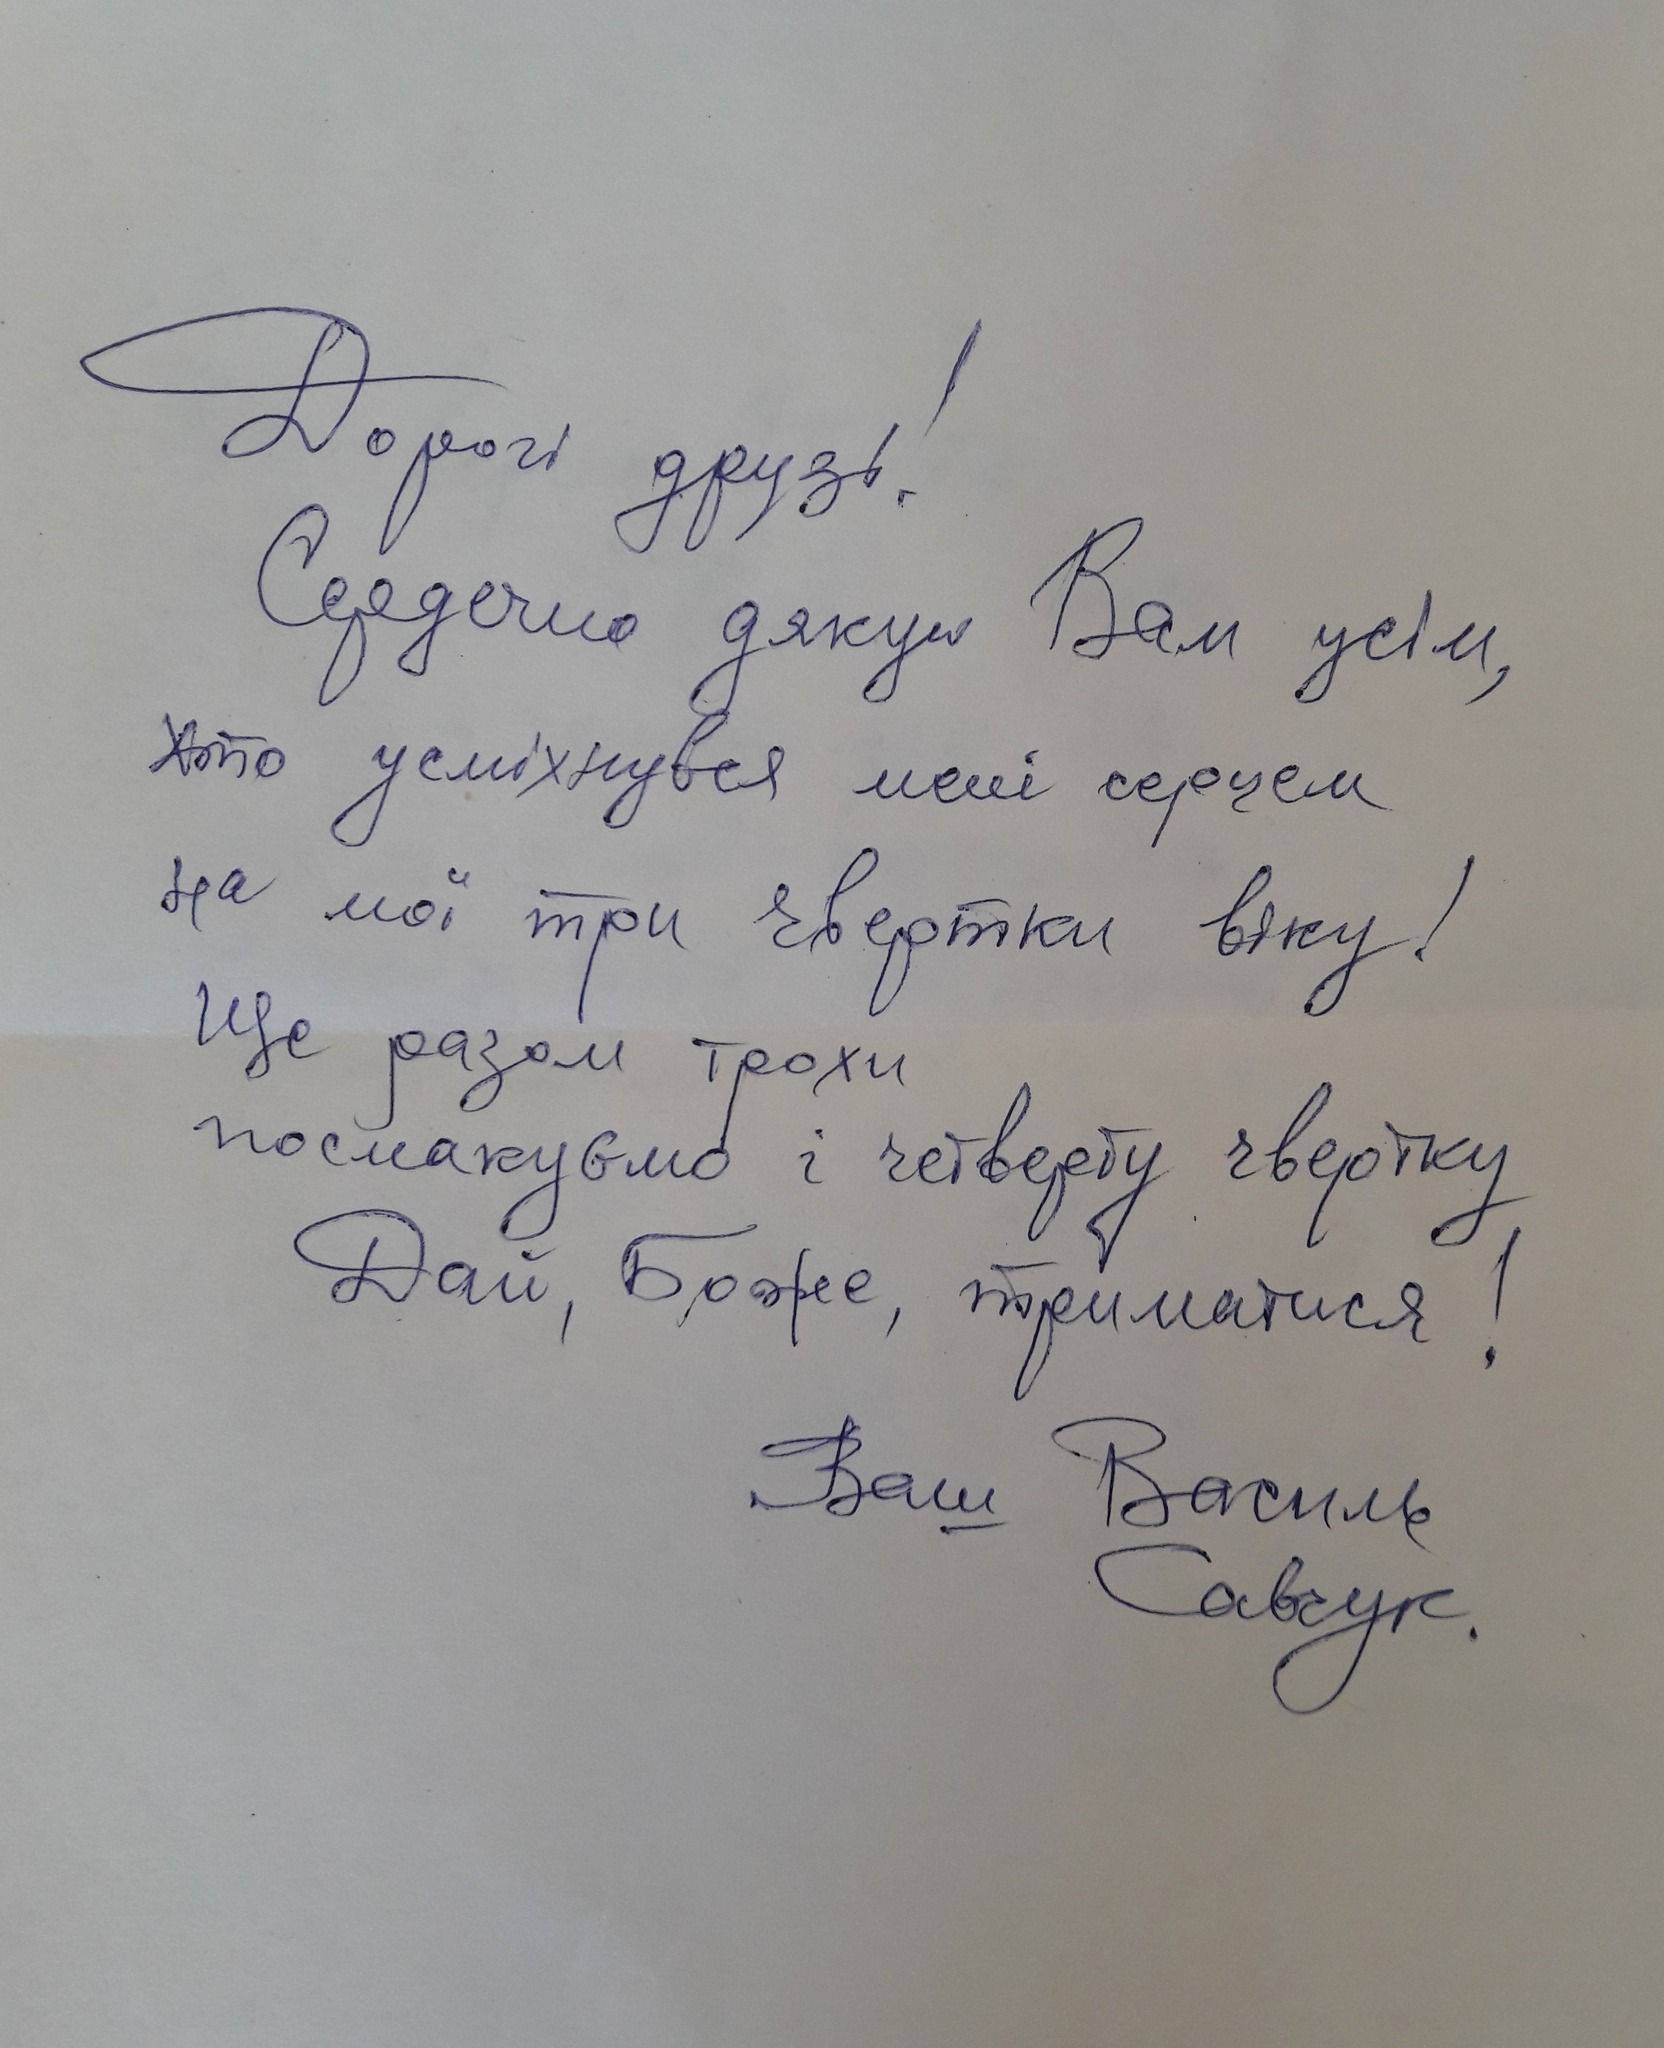 Дорогі друзі!
Сердечно дякую Вам усім,
хто усміхнувся мені серцем
на мої три чвертки віку!
Ще разом трохи
посмакуємо і четверту чвертку
Дай, Боже, триматися!
Ваш Василь
Савчук.